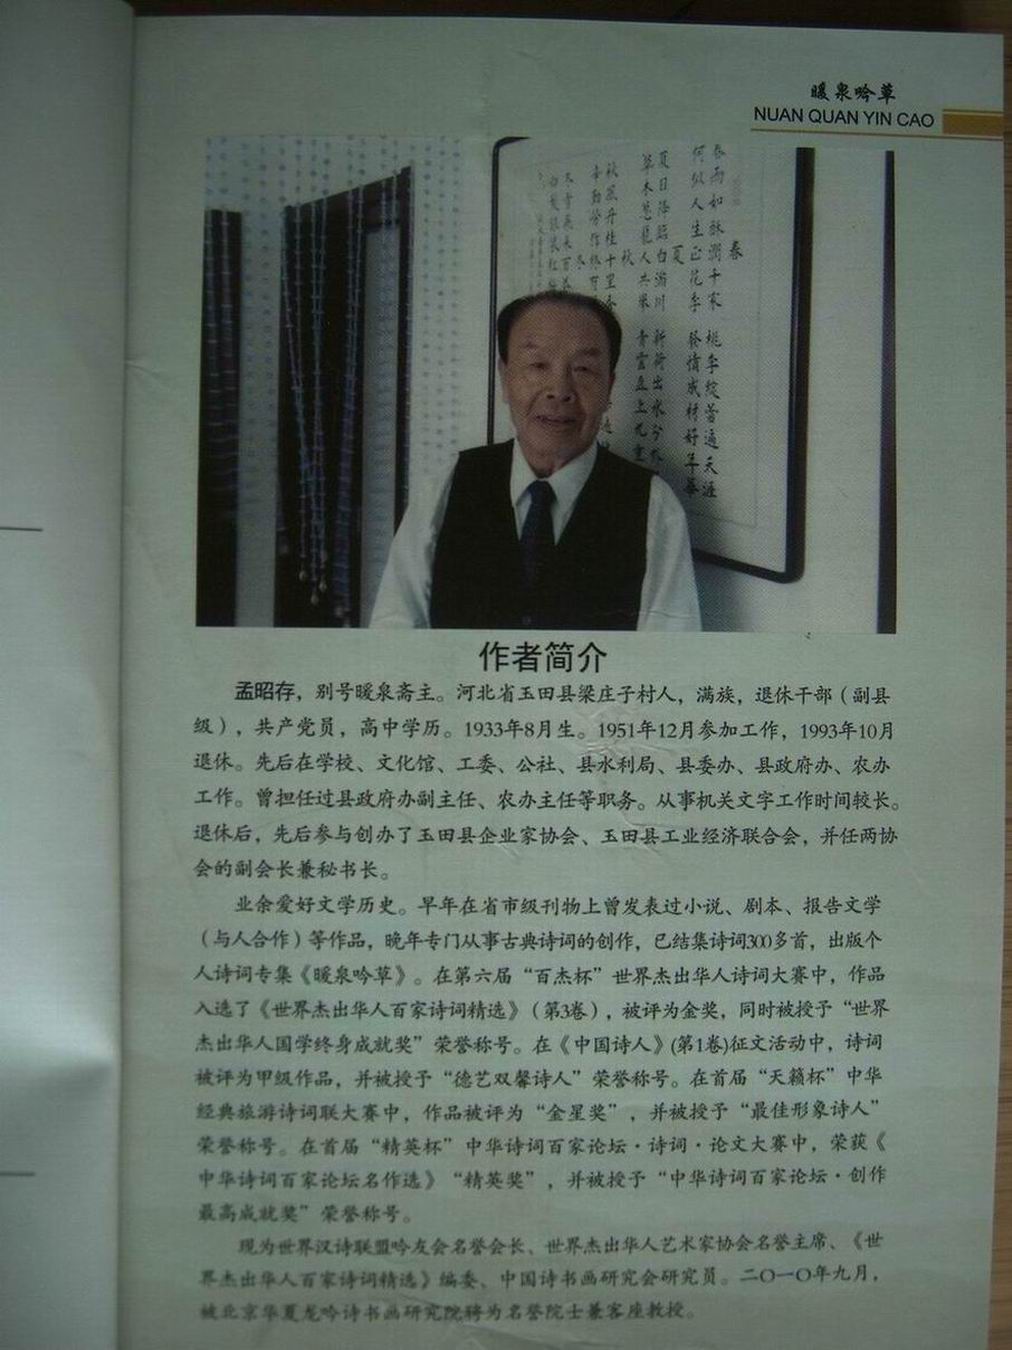 暖泉吟草
NUAN QUAN YIN CAO
春
春雨如酥润千家 桃李绽蕾遍天涯
何似人生正花季
夏
秋
冬
作者简介
孟昭存，别号暖泉斋主。河北省玉田县梁庄子村人，满族，退休干部（副县
级），共产党员，高中学历。1933年8月生。1951年12月参加工作，1993年10月
退休。先后在学校、文化馆、工委、公社、县水利局、县委办、县政府办、农办
工作。曾担任过县政府办副主任、农办主任等职务。从事机关文字工作时间较长。
退休后，先后参与创办了玉田县企业家协会、玉田县工业经济联合会，并任两协
会的副会长兼秘书长。
业余爱好文学历史。早年在省市级刊物上曾发表过小说、剧本、报告文学
（与人合作）等作品，晚年专门从事古典诗词的创作，已结集诗词300多首，出版个
人诗词专集《暖泉吟草》。在第六届“百杰杯”世界杰出华人诗词大赛中，作品
入选了《世界杰出华人百家诗词精选》（第3卷），被评为金奖，同时被授予“世界
杰出华人国学终身成就奖”荣誉称号。在《中国诗人》(第1卷)征文活动中，诗词
被评为甲级作品，并被授予“德艺双馨诗人”荣誉称号。在首届“天籁杯”中华
经典旅游诗词联大赛中，作品被评为“金星奖”，并被授予“最佳形象诗人”
荣誉称号。在首届“精英杯”中华诗词百家论坛·诗词·论文大赛中，荣获《
中华诗词百家论坛名作选》“精英奖”，并被授予“中华诗词百家论坛·创作
最高成就奖”荣誉称号。
现为世界汉诗联盟吟友会名誉会长、世界杰出华人艺术家协会名誉主席、《世
界杰出华人百家诗词精选》编委、中国诗书画研究会研究员。二〇一〇年九月，
被北京华夏龙吟诗书画研究院聘为名誉院士兼客座教授。